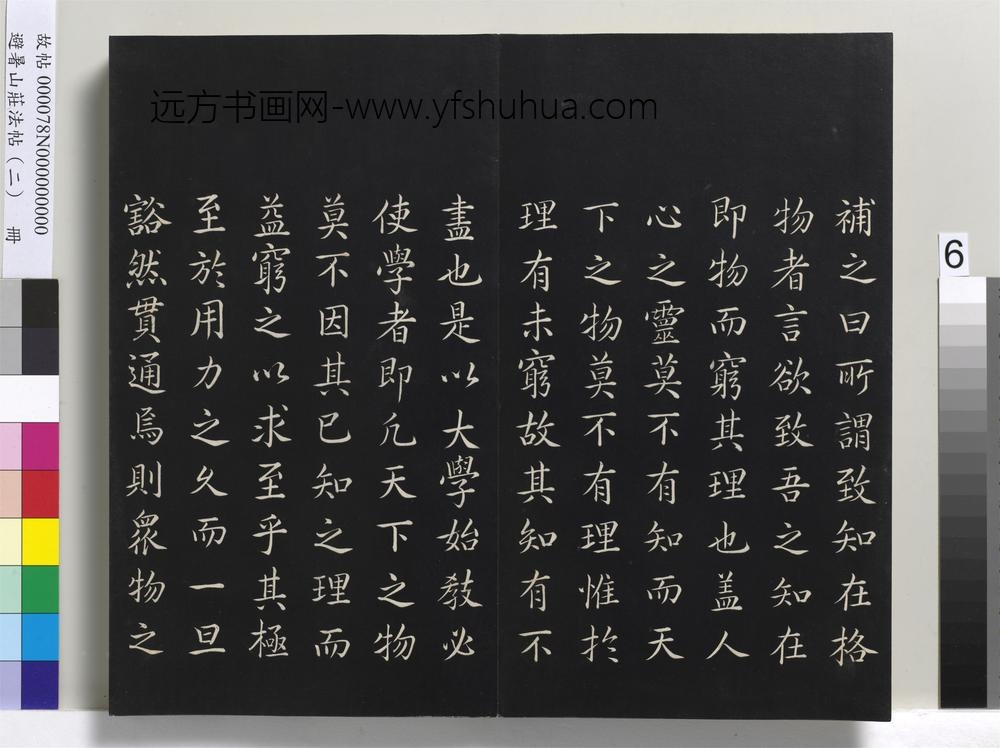 補之曰所謂致知在格
物者言欲致吾之知在
即物而窮其理也盖人
心之靈莫不有知而天
下之物莫不有理惟扵
理有未窮故其知有不
盡也是以大學始敎必
使學者即凢天下之物
莫不因其已知之理而
益窮之以求至乎其極
至於用力之久而一旦
豁然貫通焉則衆物之
远方书画网-www.yfshuhua.com
故帖 000078N000000000
避暑山莊法帖（二） 冊
6